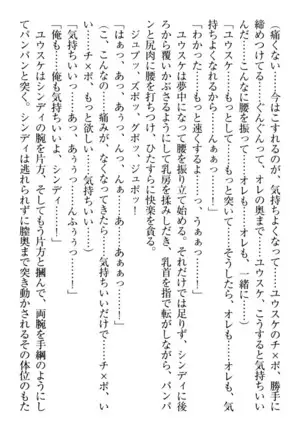 （痛くない……今はこすれるのが、気持ちよくなって……ユウスケのチ×ポ、勝手に
締めつけてる……ぐんぐんって、オレの奥まで……ユウスケ、こうすると気持ちいい
んだ……こんなに腰を振って……オレも、オレも、一緒に……）
「ユウスケ……もっとして……もっと突いて……そうしたら、オレも……オレも、気
持ちよくなれるから……んぁぁっ！」
「わかった……もっと速くするよ……っ、うぁぁっ！」
　ユウスケは夢中になって腰を振り立て始める。それだけでは足りず、シンディに後
ろから覆いかぶさるようにして乳房を揉みしだき、乳首を指で転がしながら、パンパ
ンと尻肉に腰を打ちつけ、ひたすらに快楽を貪る。
　ジュブッ、ズボッ、グボッ、ジュボッ！
「はぁっ、あっ、あぅっ、んっ、んぁっ……あ……あぁぁっ……！」
（こ、こんなの……痛みが、なくなってきたら……気持ちいいだけで……チ×ポ、い
い……チ×ポ、もっと欲しいっ……気持ちいい……！）
「気持ちいいっ……あっ、あぅっ……んふぁぁっ……！」
「俺も……俺も気持ちいいよ、シンディ……！」
　ユウスケはシンディの腕を片方、そしてもう片方と摑んで、両腕を手綱のようにし
てパンパンと突く。シンディは逃れられずに膣奥まで突き動かされるその体位のもた